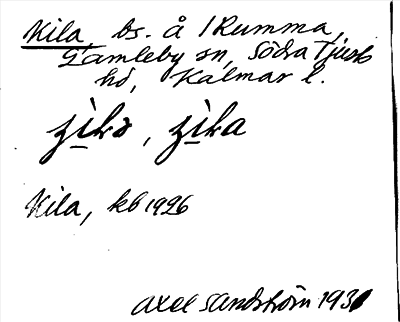 Kila, bs. å /Rumma,
Gamleby sn, Södra Tjust
hd, Kalmar l.
Kila, kb 1926
Axel Sandström 1931